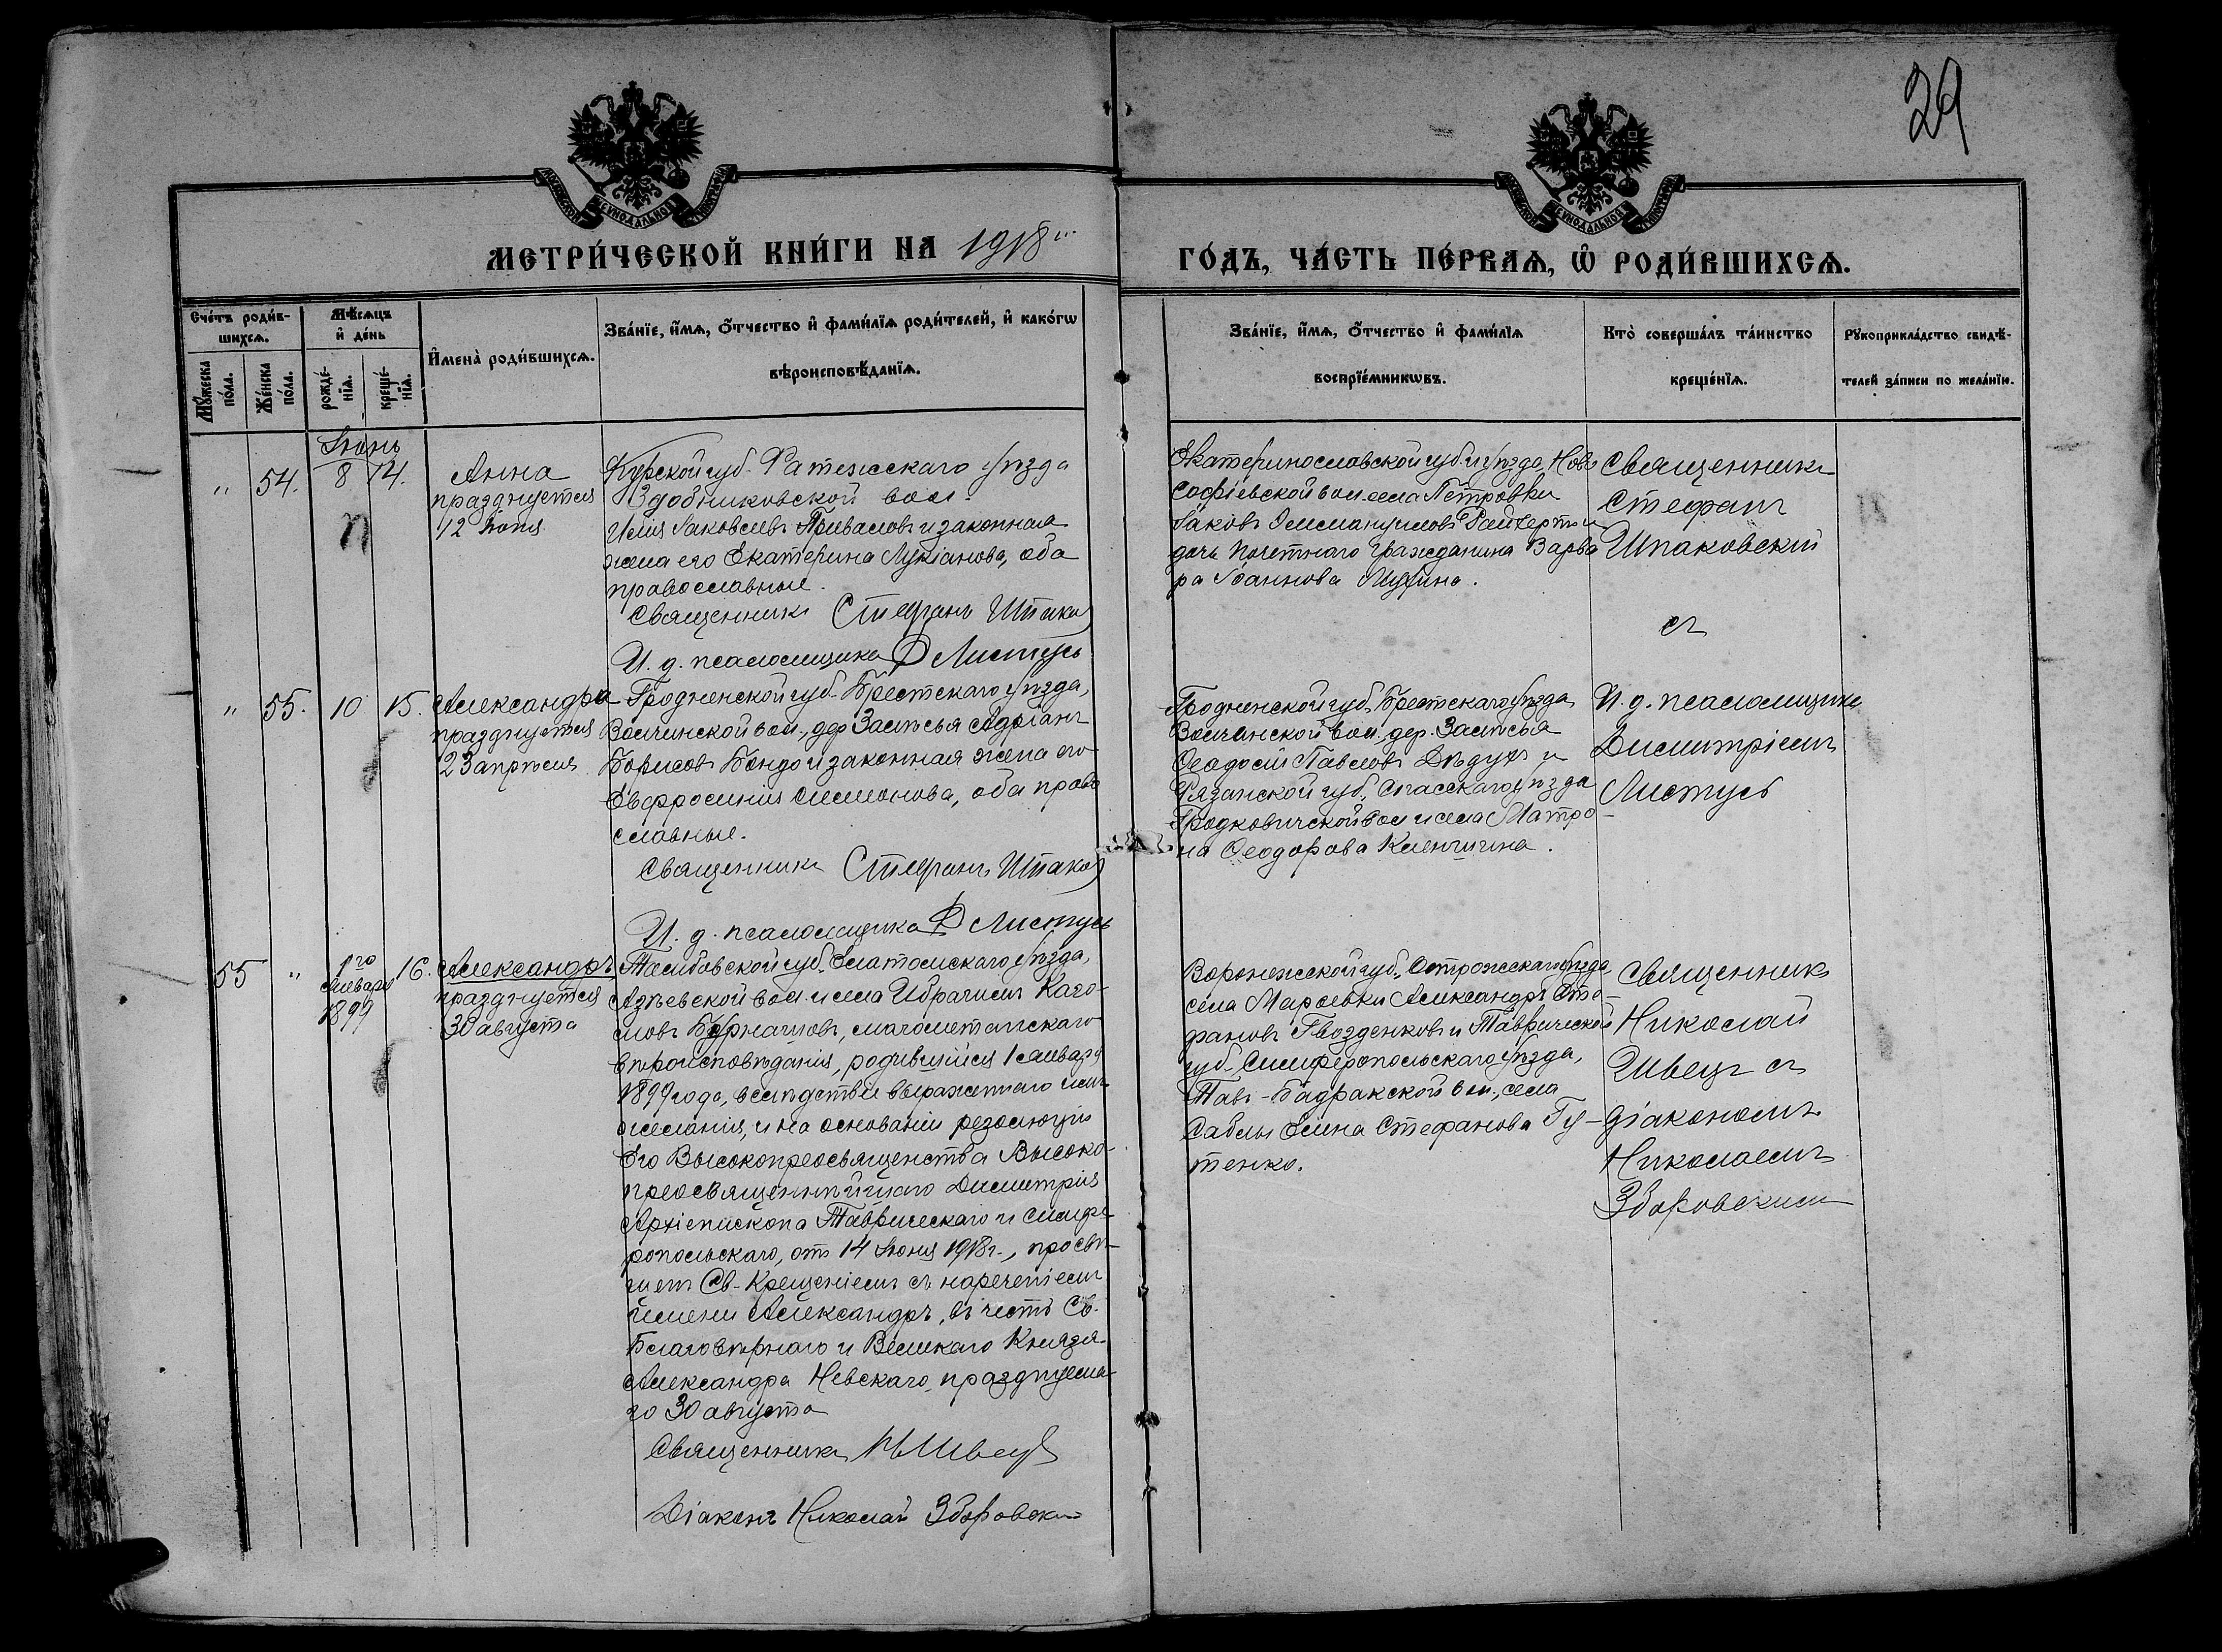 29
МЕТРИ́ЧЕСКОЙ КНИ́ГИ НА 1918 ГО́ДЪ, ЧА́СТЬ ПЕ́РВАѦ, Ѡ҆ РОДИ́ВШИХСѦ.
Сче́тъ роди́в-
шихсѧ.
Мꙋ́жеска
по́ла.
Же́нска
по́ла.
Мѣ́сѧцъ
и҆ де́нь
рожде́-
нїѧ.
креще́-
нїѧ.
И҆мена̀ роди́вшихсѧ.
Зва́нїе, и҆́мѧ, ѻ҆́тчество и҆ фами́лїѧ роди́телей, и҆ како́гѡ
вѣроисповѣ́данїѧ.
Зва́нїе, и҆́мѧ, ѻ҆́тчество и҆ фами́лїѧ
воспрїе́мникѡвъ.
Кто̀ соверша́лъ та́инство
креще́нїѧ.
Рꙋкоприкла́дство свидѣ́-
телей за́писи по жела́нїю.
Іюнь
" 54. 8 14.
Анна
празднуется
12 Іюня
Курской губ. Фатежскаго уѣзда
волос.
Илія Іаковлевъ Приваловъ и законная
жена его Екатерина Лукіанова, оба
православные.
Священникъ Стефанъ Шпаков
И. д. псаломщика Д Листусъ
Екатеринославской губ. и уѣзда, Ново
Софіевской вол. села Петровки
Іаковъ Эммануиловъ Райхертъ и
дочь почетнаго гражданина Варва
ра Іоаннова
Священникъ
Стефанъ
Шпаковскій
съ
" 55. 10 15.
Александра
празднуется
23 апрѣля
Гродненской губ. Брестскаго уѣзда,
Волчинской вол., дер. Залѣсья Адріанъ
Борисовъ Бондо и законная жена его
Евфросинія Симонова, оба право
славные.
Священникъ Стефанъ Шпаков
И. д. псаломщика Д Листусъ
Гродненской губ. Брестскаго уѣзда
Волчинской вол. дер. Залѣсья
Ѳеодосій Павловъ Дѣдухъ и
Рязанской губ., Спасскаго уѣзда
вол и села Матро-
на Ѳеодорова
И. д. псаломщика
Димитріемъ
Листусъ
55 " 1го
Января
1899
16.
Александръ
празднуется
30 августа
Тамбовской губ., Елатомскаго уѣзда,
Азѣевской вол. и села Ибрагимъ
ловъ Бурнашовъ, магометанскаго
вѣроисповѣданія, родившійся 1 января
1899 года, вслѣдствіе выраженнаго имъ
желанія, и на основаніи резолюціи
Его Высокопреосвященства Высоко-
преосвященнѣйшаго Димитрія
Архіепископа Таврическаго и Симфе-
ропольскаго, отъ 14 Іюня 1918 г., просвѣ-
щенъ Св. Крещеніемъ съ нареченіемъ
имени Александръ, въ честь Св.
Благовѣрнаго и Великаго Князя
Александра Невскаго, празднуема-
го 30 августа
Священникъ Н Швецъ
Діаконъ Николай Зборовскій
Воронежской губ., Острожскаго уѣзда
села Марьевки Александръ Сте-
фановъ Гвозденковъ и Таврической
губ. Симферопольскаго уѣзда,
Тавъ-Бадракской вол., села
Саблы Елена Стефанова Гу-
тенко.
Священникъ
Николай
Швецъ съ
діакономъ
Николаемъ
Зборовскимъ